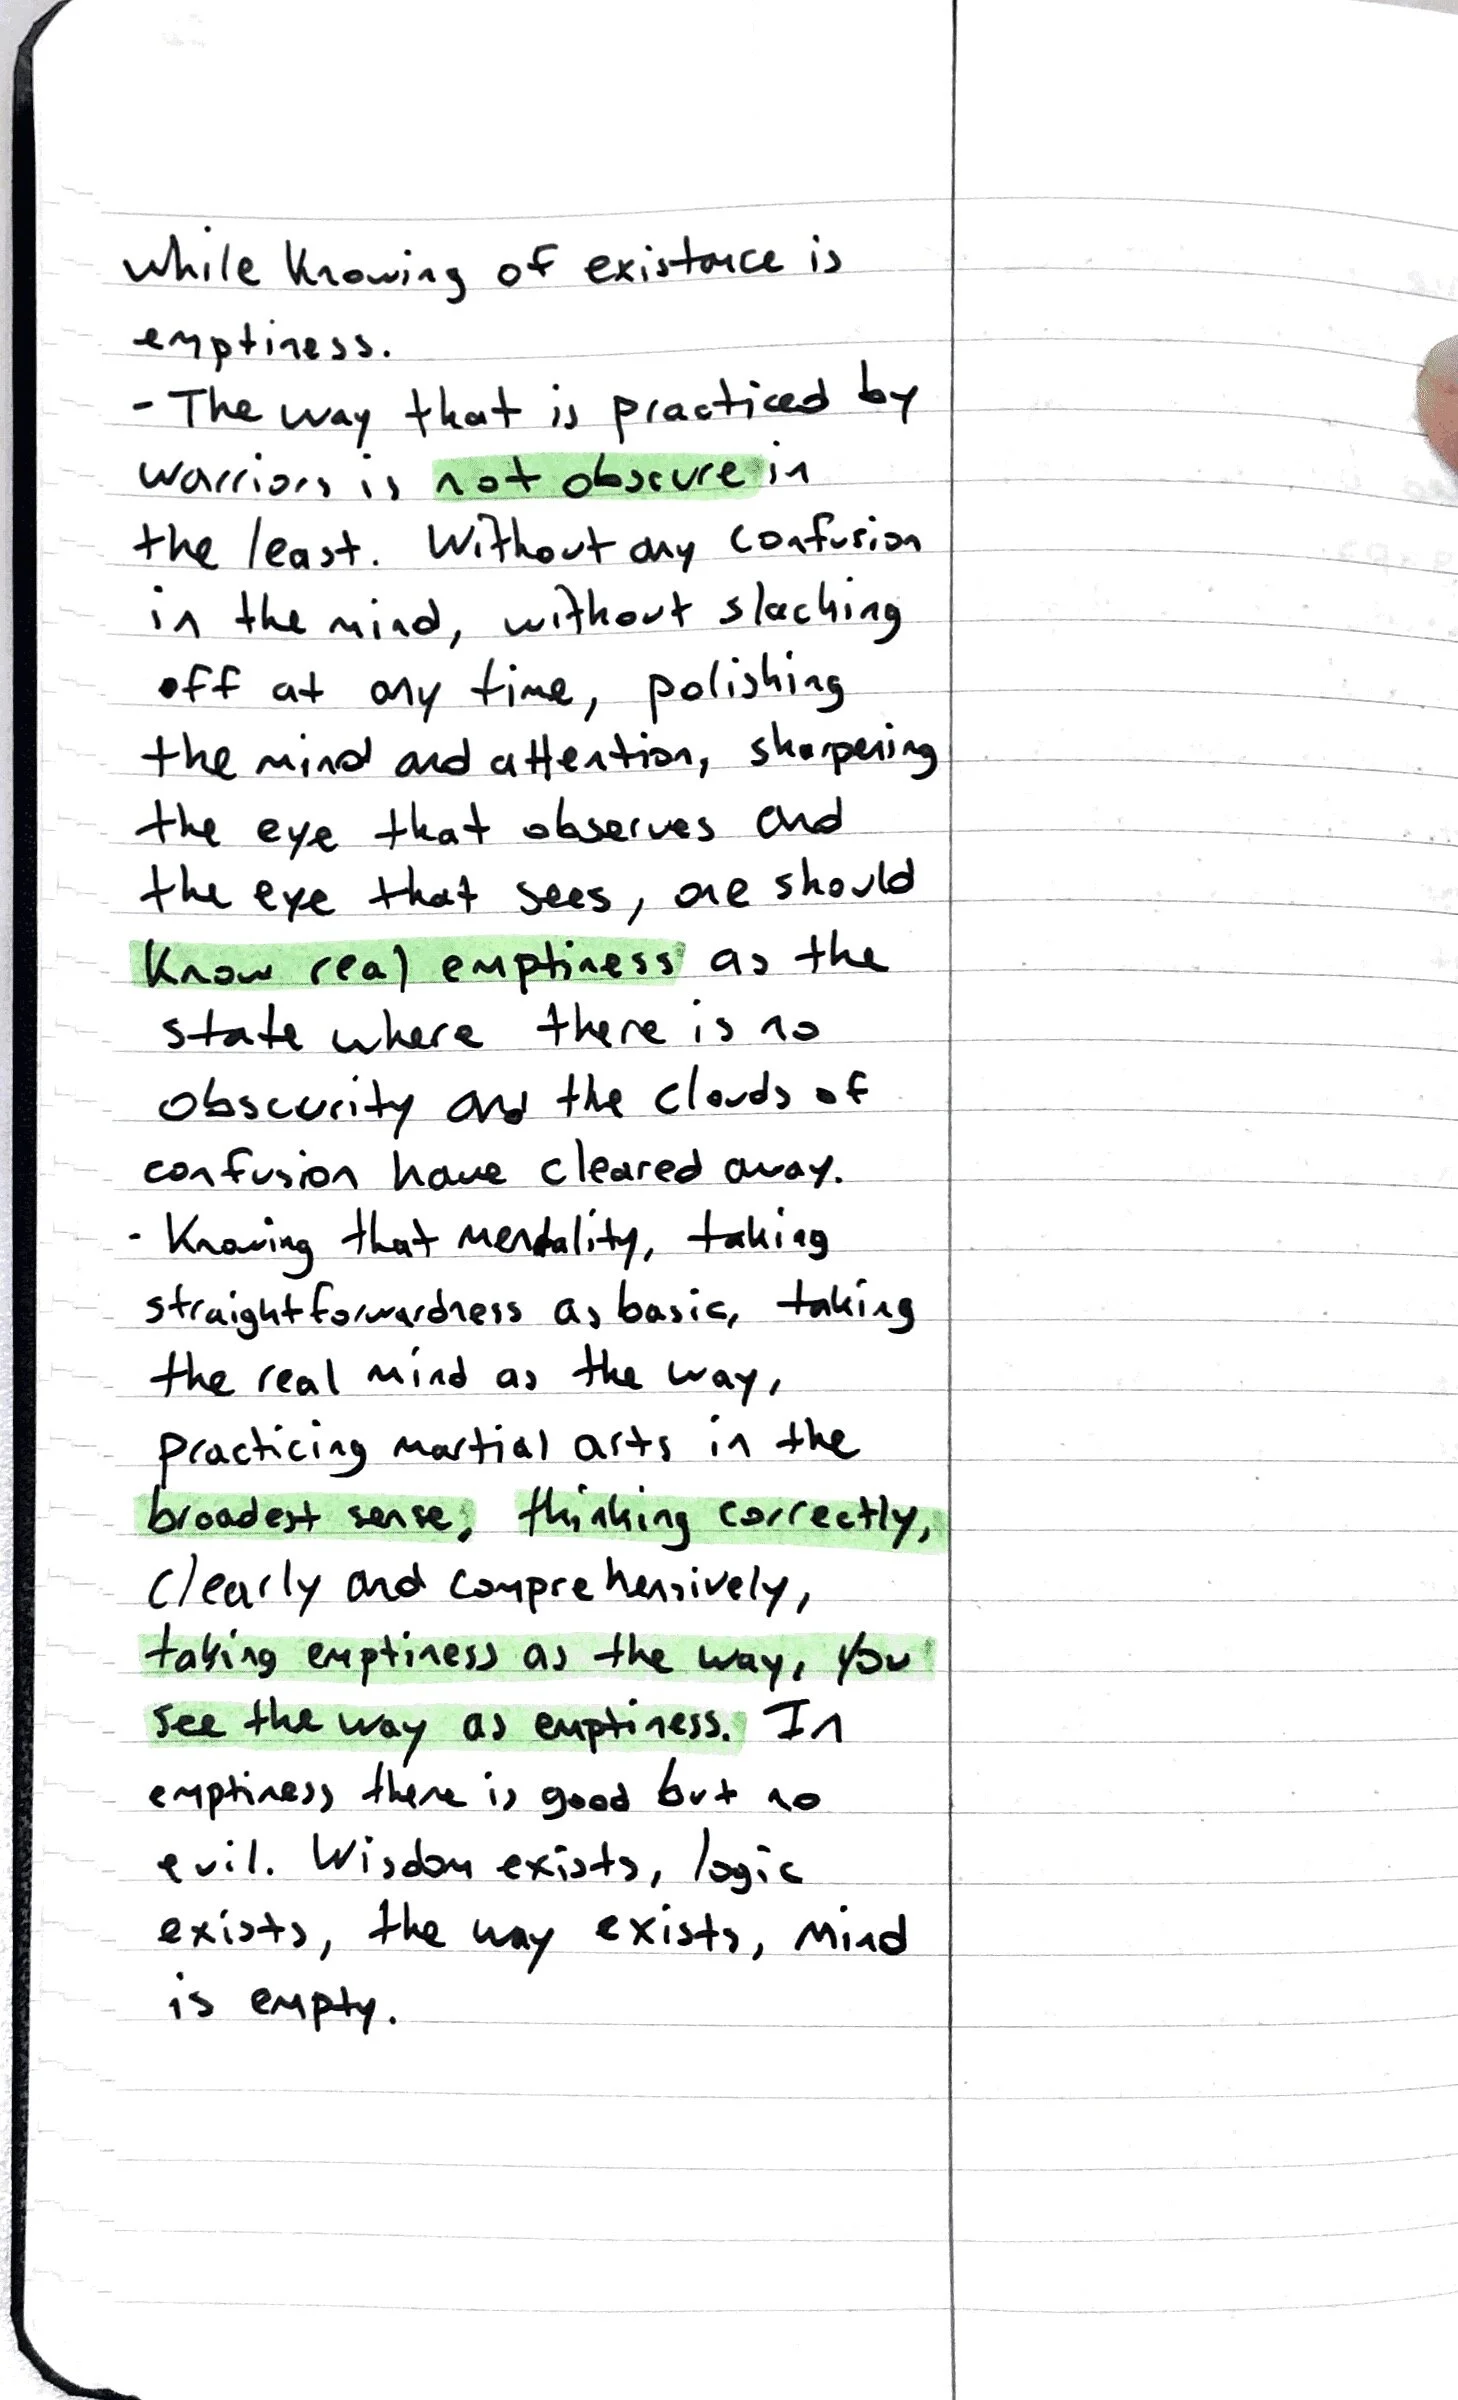 while knowing of existance is
emptiness.
- The way that is practiced by
warriors is not obscure in
the least. Without any confusion
in the mind, without slacking
off at any time, polishing
the mind and attention, sharpening
the eye that observes and
the eye that sees, one should
know real emptiness as the
state where there is no
obscurity and the clouds of
confusion have cleared away.
- Knowing that mentality, taking
straightforwardness as basic, taking
the real mind as the way,
practicing martial arts in the
broadest sense, thinking correctly,
clearly and comprehensively,
taking emptiness as the way, you
see the way as emptiness. In
emptiness there is good but no
evil. Wisdom exists, logic
exists, the way exists, mind
is empty.